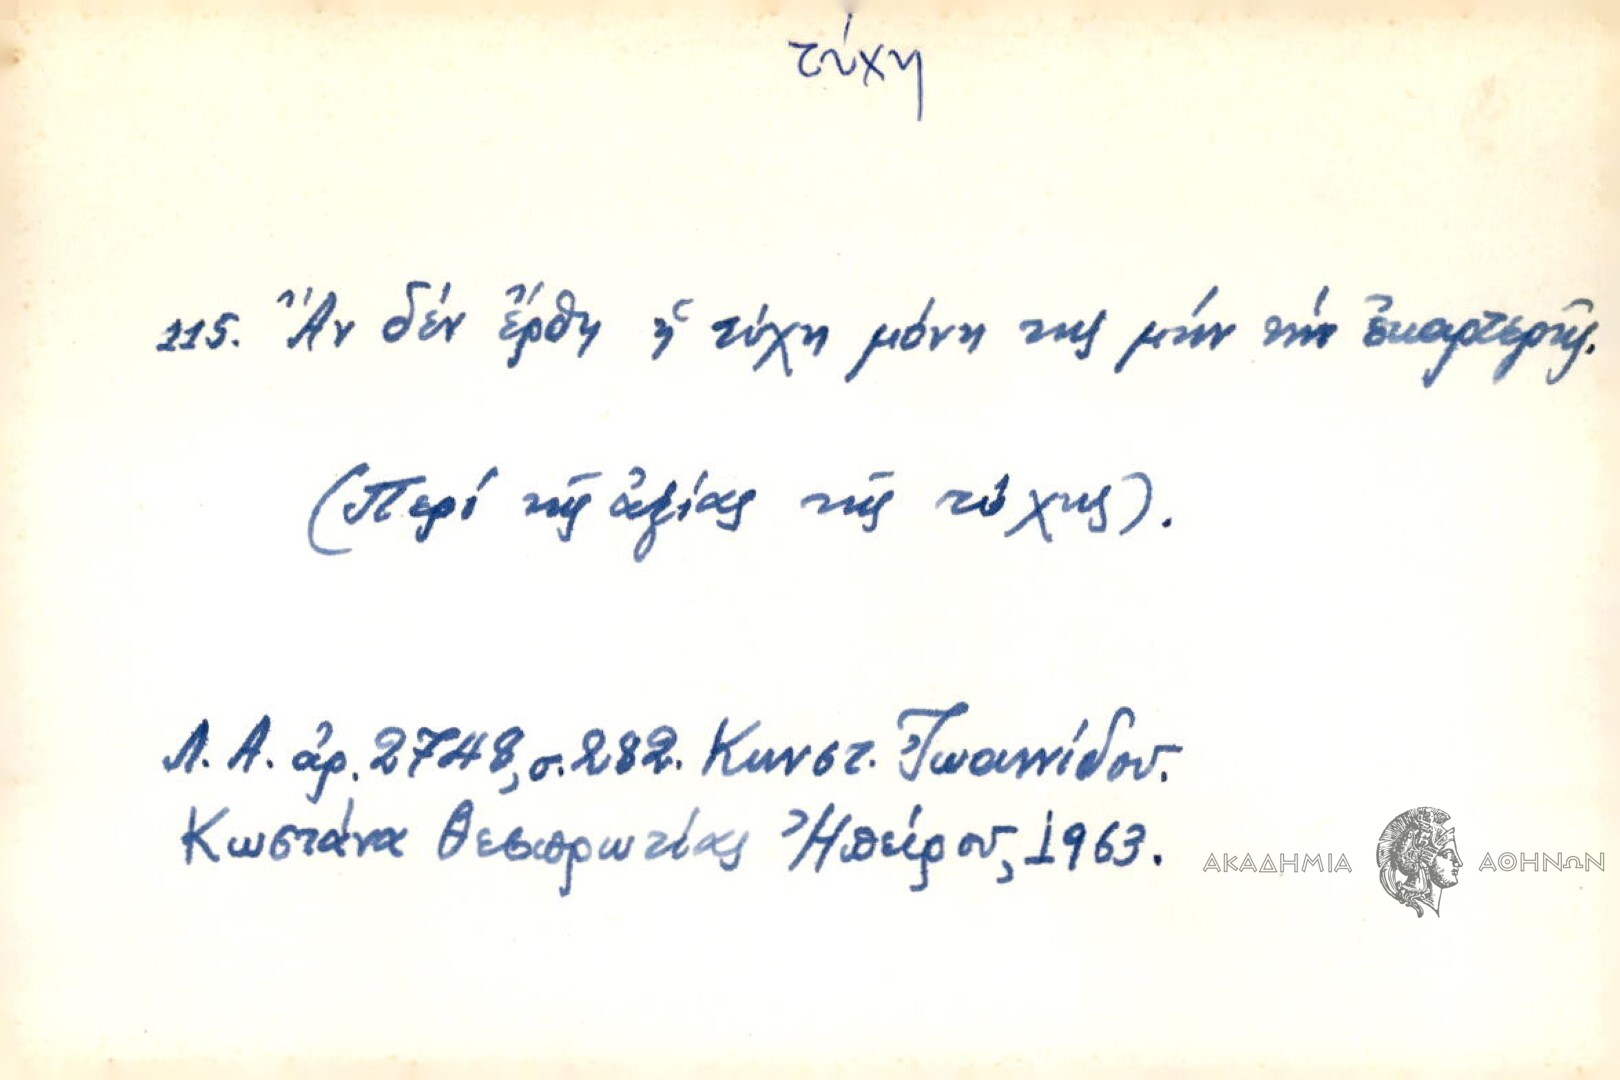 τύχη
115. Ἂν δέν ἔρθη ἡ τύχη μόνη της μήν τήν ἐκαρτερῆς.
(Περί τῆς ἀξίας τῆς τύχης).
Λ. Α. ἀρ. 2748, σ. 282. Κωνστ. Ἰωαννίδου.
Κωστάνα Θεσπρωτίας Ἠπείρου, 1963.
ΑΚΑΔΗΜΙΑ ΑΘΗΝΩΝ